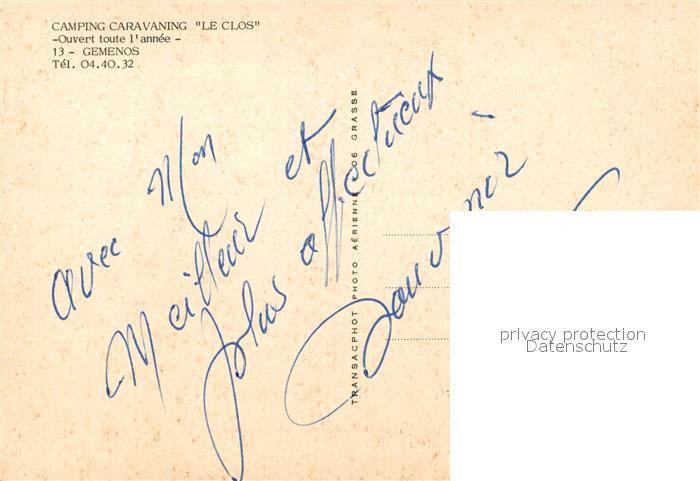 CAMPING CARAVANING "LE CLOS"
-Ouvert toute l'année -
13 - GEMENOS
Tél. 04.40.32
avec Mon
Meilleur et
plus affectueux
Souvenir
TRANSACPHOT PHOTO AÉRIENNE 06 GRASSE
privacy protection
Datenschutz